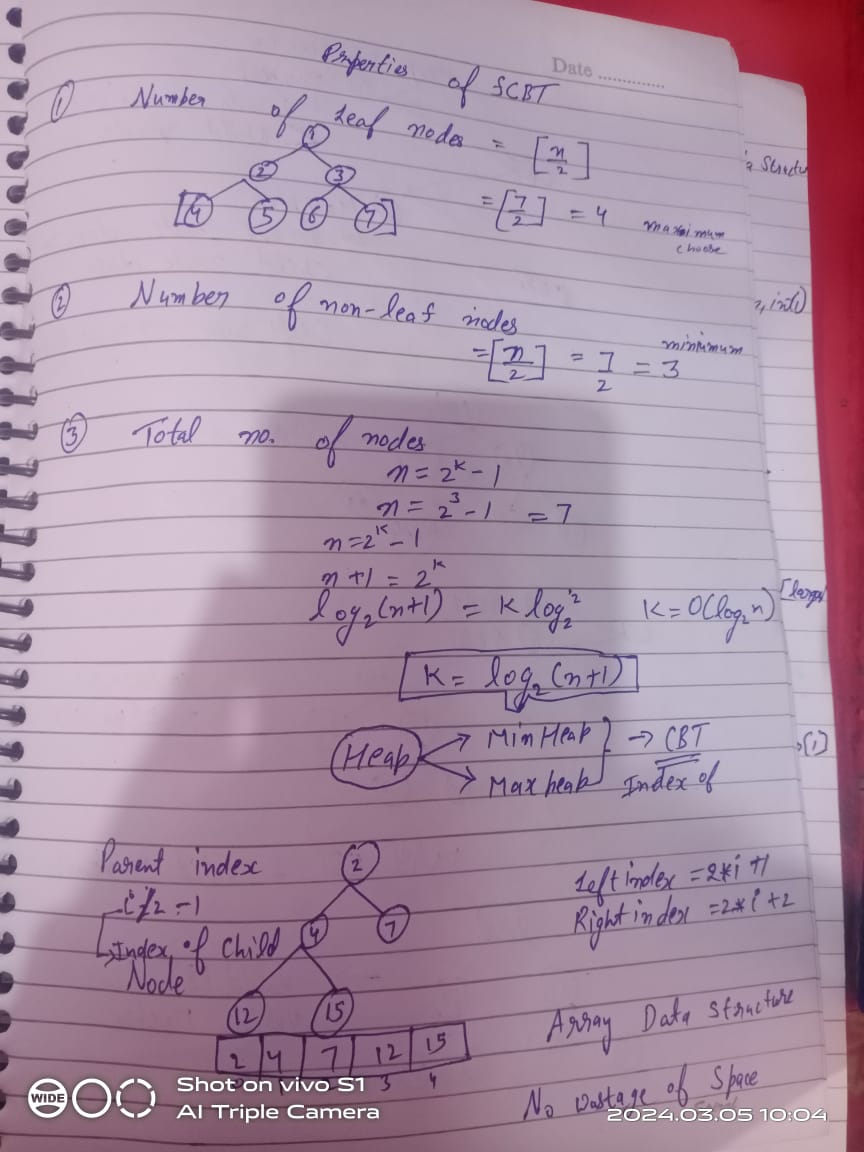 Date ..............
Properties of SCBT
① Number of Leaf nodes = [n/2]
1
2 3
[4 5 6 7]
= [7/2] = 4 maximum choose
② Number of non-leaf nodes
= [n/2] = 7/2 = 3 minimum
③ Total no. of nodes
n = 2^k - 1
n = 2^3 - 1 = 7
n = 2^k - 1
n + 1 = 2^k
log₂(n+1) = K log₂2 K = O(log₂n)
K = log₂(n+1)
Heap → Min Heap } → CBT
→ Max heap Index of
Parent index
i/2 - 1
Index of Child Node
2
4 7
12 15
2 4 7 12 15
3 4
Left index = 2*i + 1
Right index = 2*i + 2
Array Data Structure
No wastage of Space
WIDE
Shot on vivo S1
AI Triple Camera
2024.03.05 10:04